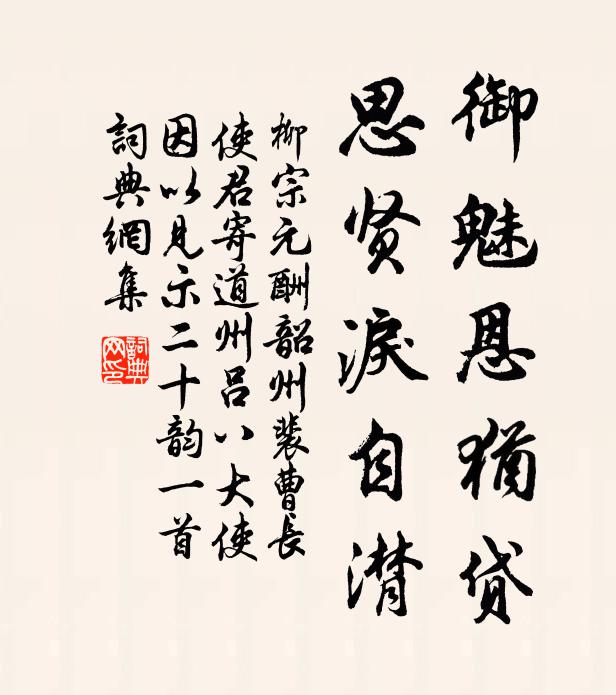 御魅恩犹贷
思贤淚自潸
柳宗元酬韶州裴曹長
使君寄道州呂八大使
因以見示二十韵一首
詞典網集
詞典
网印